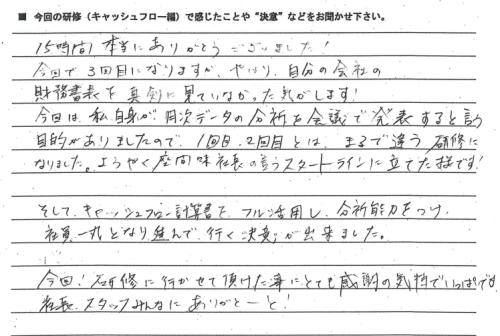 ■ 今回の研修（キャッシュフロー編）で感じたことや“決意”などをお聞かせ下さい。
15時間！本当にありがとうございました！
今回で3回目になりますが、やはり、自分の会社の
財務書表を真剣に見ていなかった気がします！
今回は、私自身が月次データの分析を会議で発表すると言う
目的がありましたので、1回目、2回目とは、まるで違う研修に
なりました。ようやく座間味社長の言うスタートラインに立てた様です！
そして、キャッシュフロー計算書を、フルに活用し、分析能力をつけ、
社員一丸となり進んで、行く決意が出来ました。
今回！研修に行かせて頂けた事にとても感謝の気持でいっぱいです
社長、スタッフみんなにありがとーと！